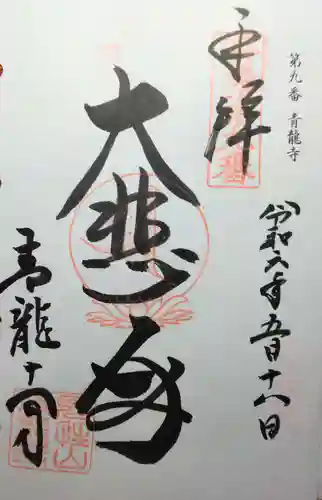 奉拝
第九番 青龍寺
令和六年五月十八日
大悲殿
青龍寺